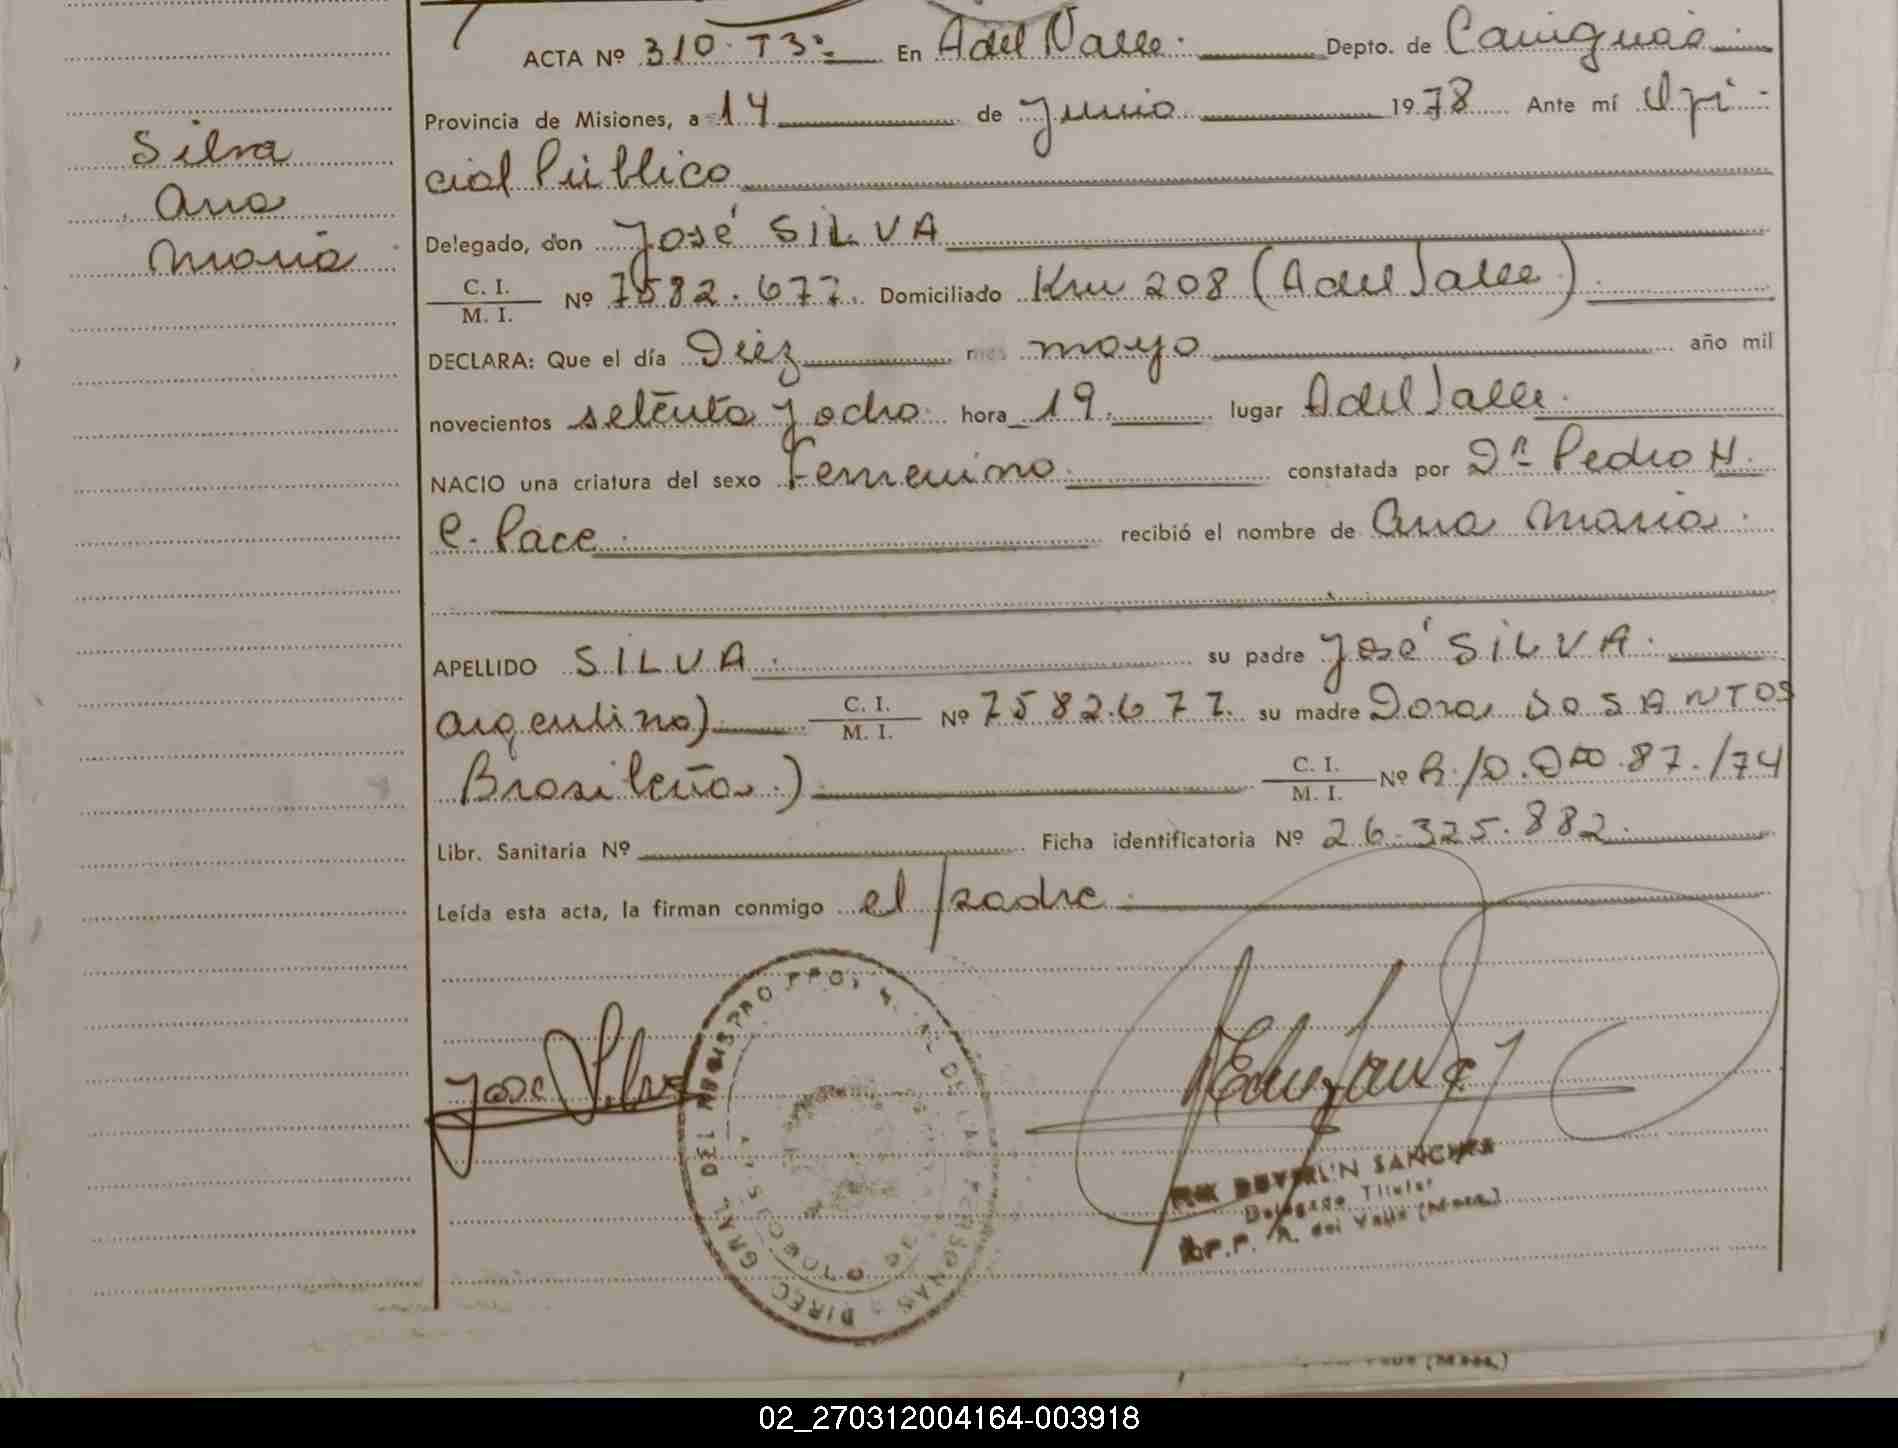 ACTA Nº 310.T3º En A del Valle. Depto. de Cainguás.
Provincia de Misiones, a 14 de Junio 1978 Ante mí Ofi-
cial Público
Delegado, don José SILVA
C. I.
M. I. Nº 7582.677. Domiciliado Km 208 (A del Valle)
DECLARA: Que el día Diez mes mayo año mil
novecientos setenta y ocho. hora 19. lugar A del Valle.
NACIO una criatura del sexo Femenino. constatada por Dr Pedro H.
C. Pace. recibió el nombre de Ana Maria.
APELLIDO SILVA. su padre José SILVA.
argentino) C. I.
M. I. Nº 7582.677. su madre Dora DO SANTOS
Brasileña.) C. I.
M. I. Nº
Libr. Sanitaria Nº Ficha identificatoria Nº 26.325.882.
Leída esta acta, la firman conmigo el padre.
Silva
Ana
Maria
Jose Silva
DIREC. GRAL. DEL REGISTRO PPCIAL DE LAS PERSONAS
SANCHEZ
Delegado Titular
R.P.P. A. del Valle (Mnes.)
02_270312004164-003918